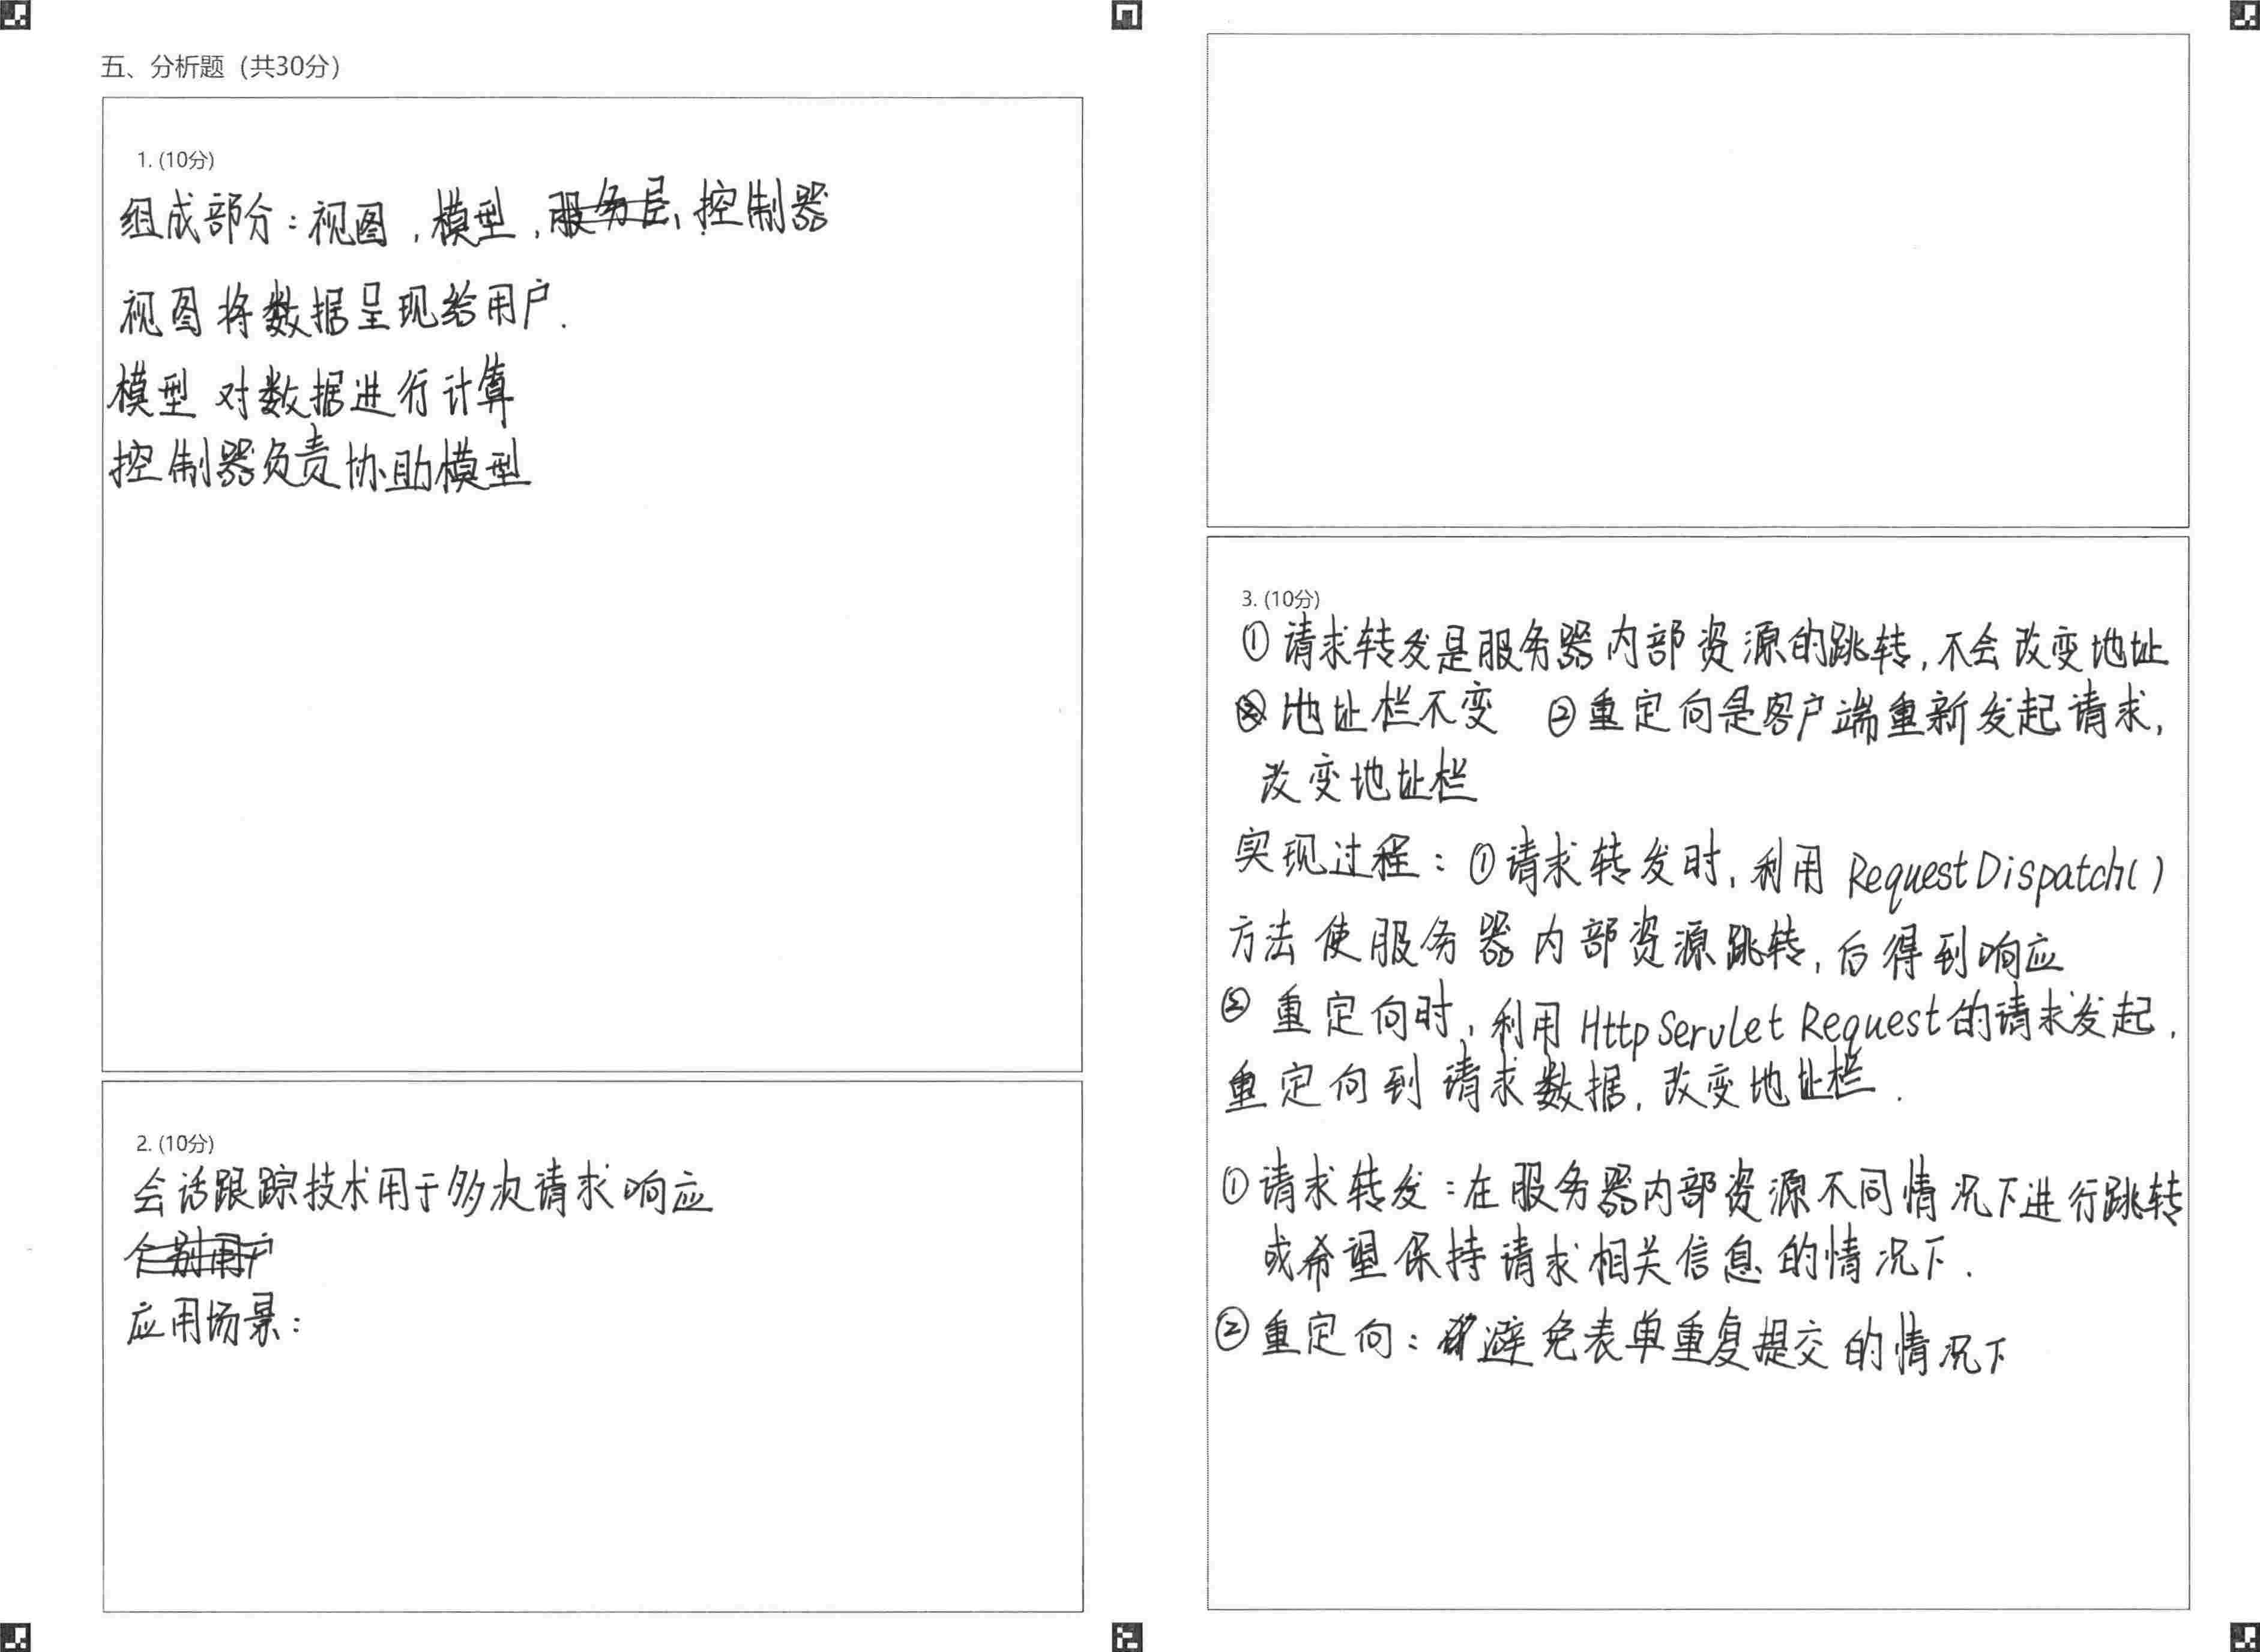 五、分析题（共30分）
1. (10分)
组成部分：视图，模型，服务层、控制器
视图将数据呈现给用户.
模型对数据进行计算
控制器负责协助模型
2. (10分)
会话跟踪技术用于多次请求响应
个别用户
应用场景：
3. (10分)
①请求转发是服务器内部资源的跳转，不会改变地址
地址栏不变 ②重定向是客户端重新发起请求，
改变地址栏
实现过程：①请求转发时，利用 RequestDispatch()
方法使服务器内部资源跳转，后得到响应
② 重定向时，利用 HttpServletRequest的请求发起，
重定向到请求数据，改变地址栏.
①请求转发：在服务器内部资源不同情况下进行跳转
或希望保持请求相关信息的情况下.
②重定向：避免表单重复提交的情况下